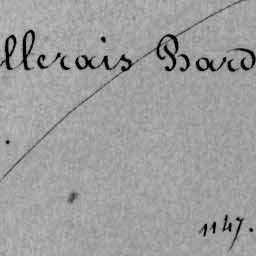 llerais Bard
1147.